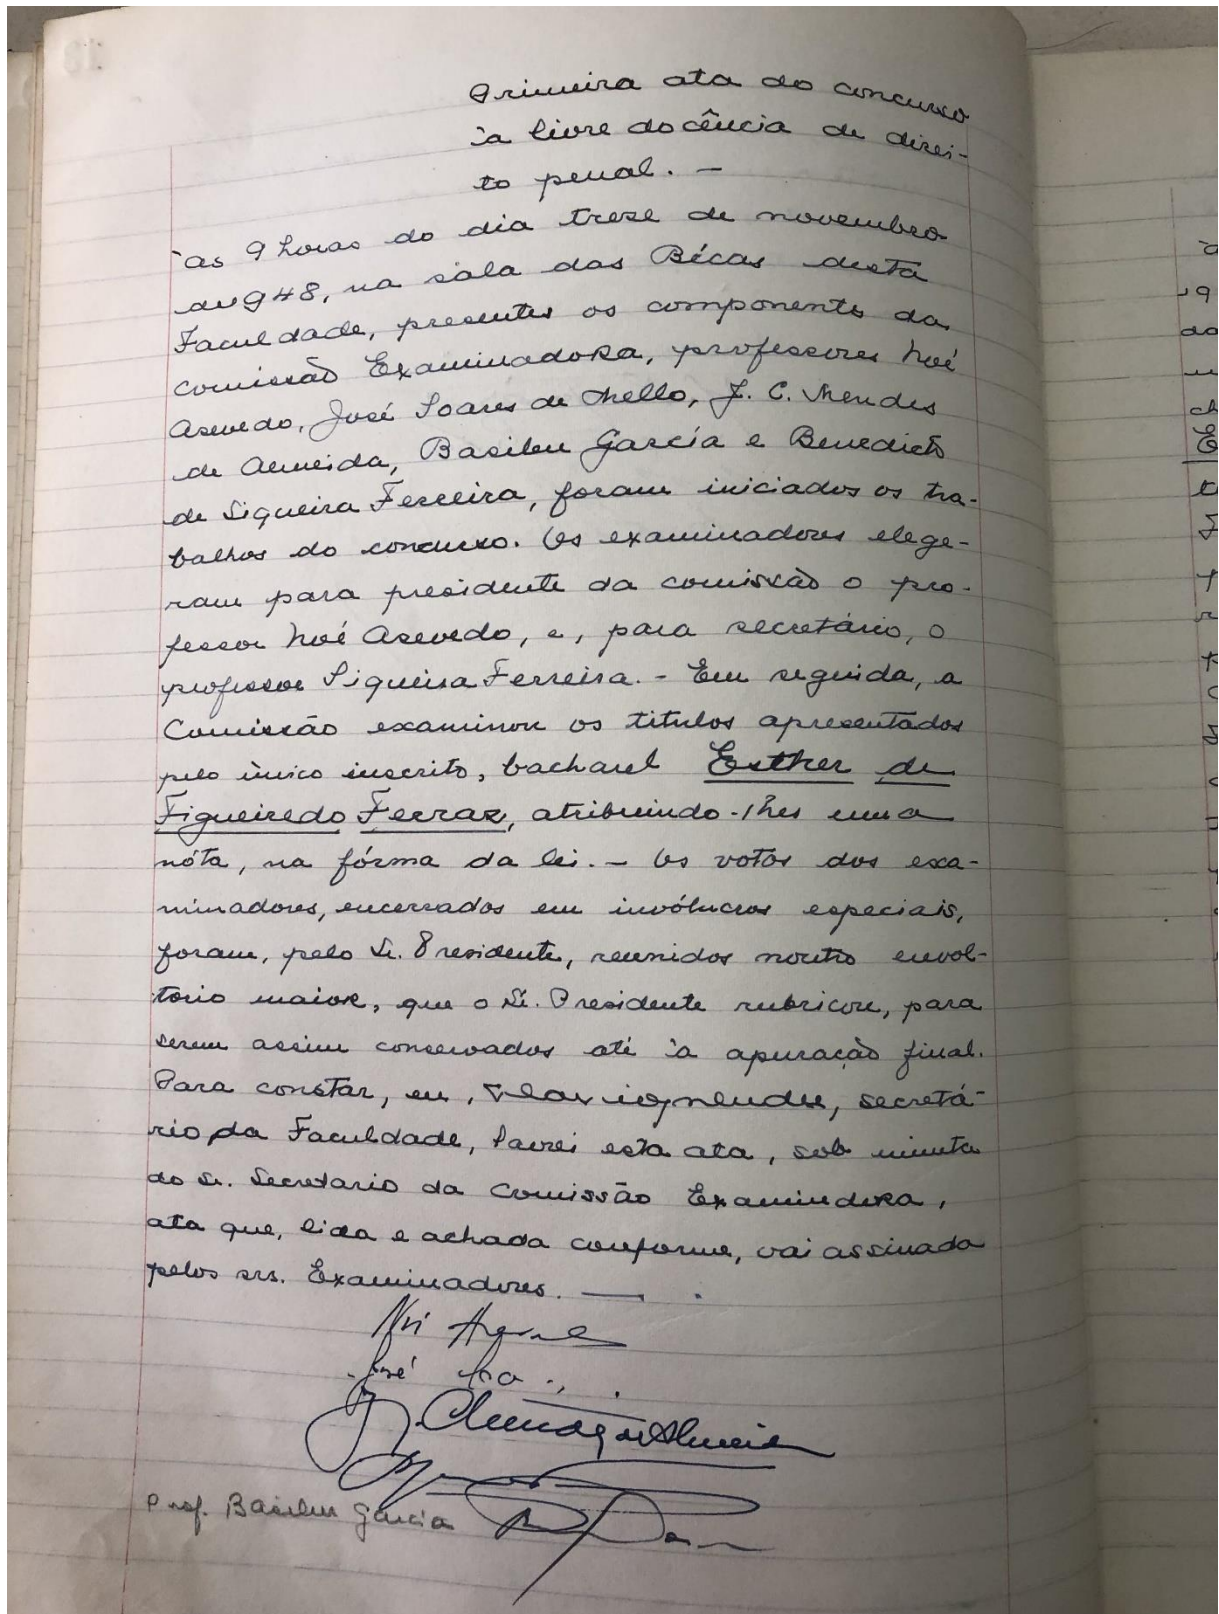 Primeira ata do concurso
à livre docência de direi-
to penal. —
às 9 horas do dia treze de novembro
de 1948, na sala das Bécas desta
Faculdade, presentes os componentes da
comissão Examinadora, professores Noé
Asevedo, José Soares de Mello, J. C. Mendes
de Almeida, Basileu García e Benedicto
de Siqueira Ferreira, foram iniciados os tra-
balhos do concurso. Os examinadores elege-
ram para presidente da comissão o pro-
fessor Noé Asevedo, e, para secretário, o
professor Siqueira Ferreira. - Em seguida, a
Comissão examinou os titulos apresentados
pelo único inscrito, bacharel Esther de
Figueiredo Ferraz, atribuindo-lhes uma
nóta, na fórma da lei. — Os votos dos exa-
minadores, encerrados em invólucros especiais,
foram, pelo Sr. Presidente, reunidos noutro envol-
torio maior, que o Sr. Presidente rubricou, para
serem assim conservados até à apuração final.
Para constar, eu, Flavio Mendes, secretá-
rio da Faculdade, lavrei esta ata, sob minuta
do Sr. Secretario da Comissão Examindora,
ata que, lida e achada conforme, vai assinada
pelos srs. Examinadores. —
Noé Azevedo
José
J. C. Mendes de Almeida
Prof. Basileu Garcia